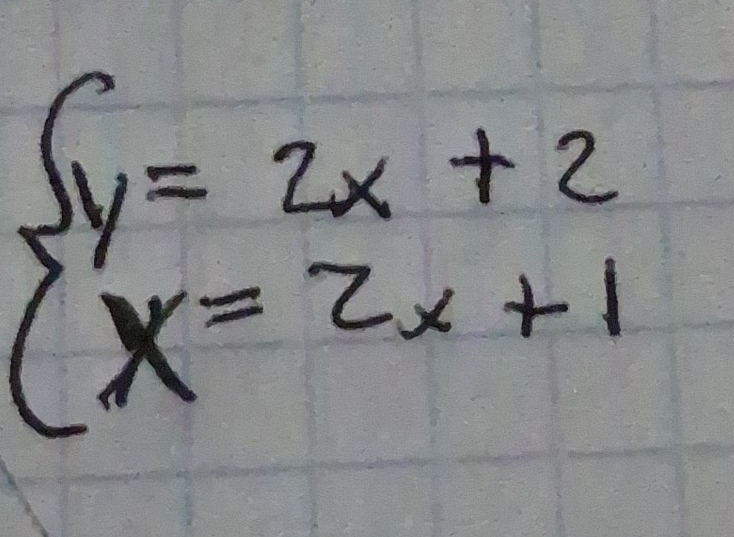 y = 2x + 2
x = 2x + 1